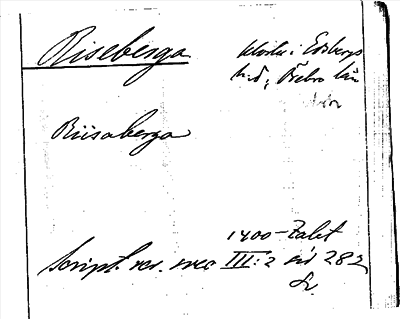 Riseberga
kloster i Edsbergs
h:d, Örebro län
Riisaberga
1400-talet
Script. rer. svec III:2 sid 282